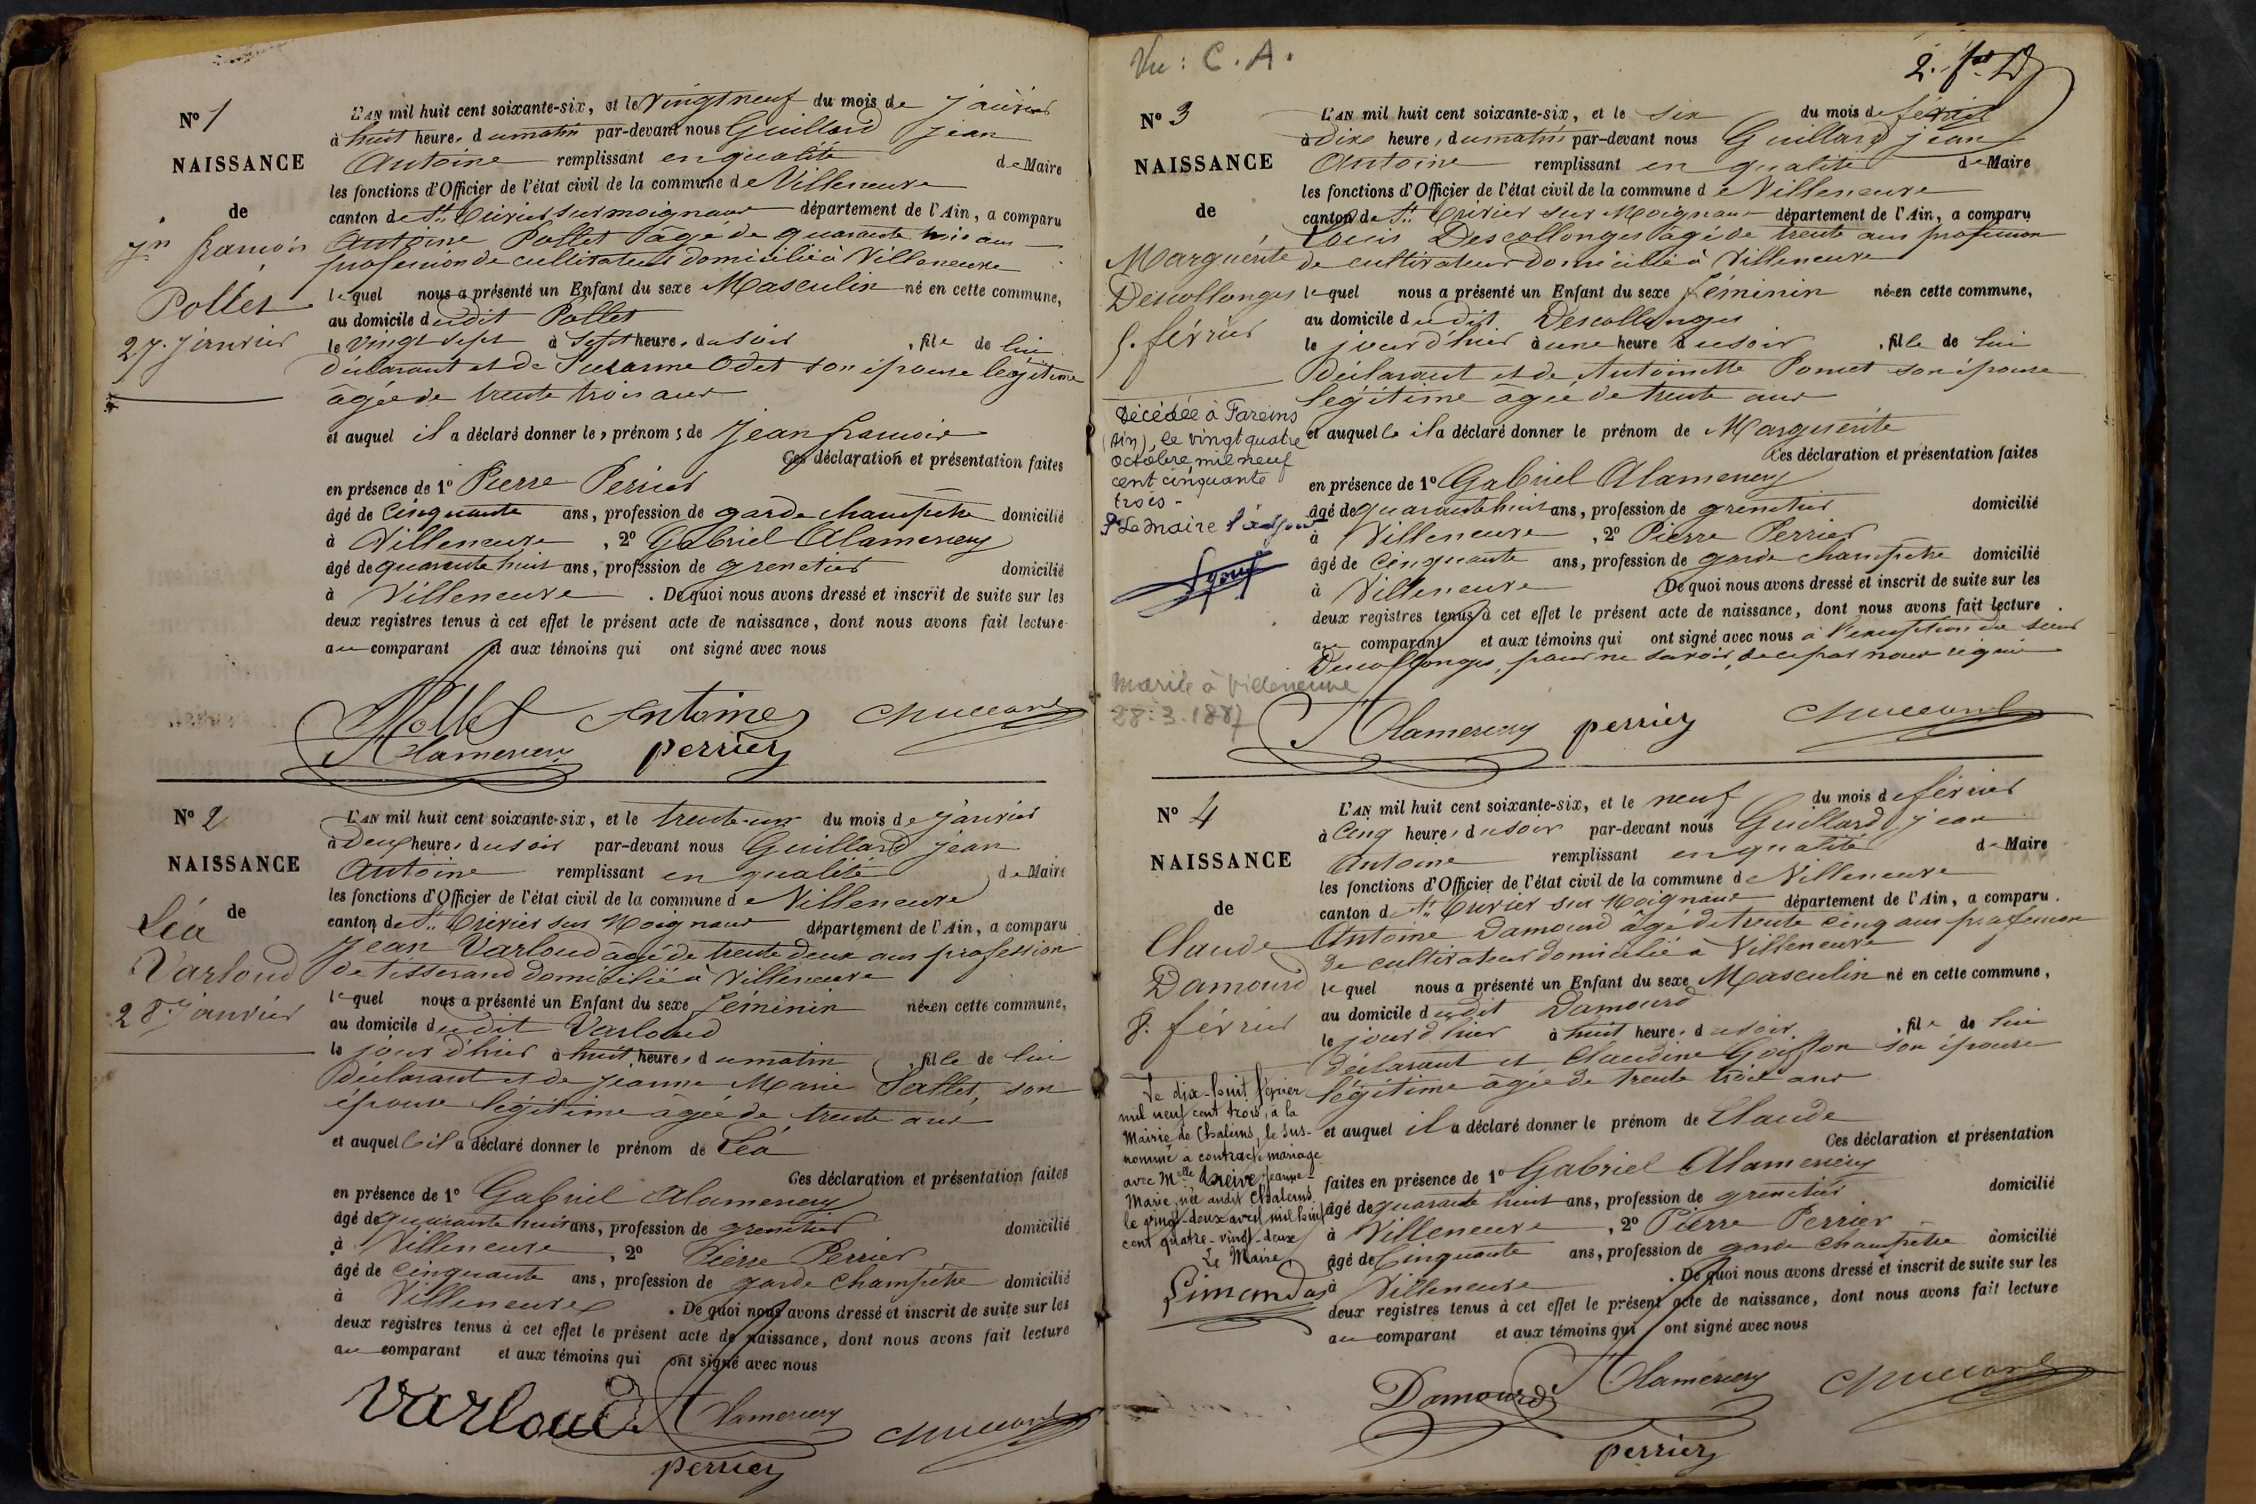 N° 1
NAISSANCE
de
Jn francois
Pollet
27. janvier
L'AN mil huit cent soixante-six, et le vingt neuf du mois de janvier
à huit heures du matin par-devant nous Guillard jean
Antoine remplissant en qualité de Maire
les fonctions d'Officier de l'état civil de la commune de Villeneuve
canton de St. Trivier sur moignans département de l'Ain, a comparu
Antoine Pollet âgé de quarante trois ans
profession de cultivateur domicilié à Villeneuve
lequel nous a présenté un Enfant du sexe Masculin né en cette commune,
au domicile dudit Pollet
le vingt sept à sept heures du soir, fils de lui
déclarant et de Suzanne Odet son épouse légitime
âgée de trente trois ans
et auquel il a déclaré donner les prénoms de Jean francois
Ces déclaration et présentation faites
en présence de 1° Pierre Perrier
âgé de Cinquante ans, profession de garde champêtre domicilié
à Villeneuve, 2° Gabriel Alamercery
âgé de quarante huit ans, profession de grenetier domicilié
à Villeneuve. De quoi nous avons dressé et inscrit de suite sur les
deux registres tenus à cet effet le présent acte de naissance, dont nous avons fait lecture
au comparant et aux témoins qui ont signé avec nous
Pollet Antoine
Alamercery perrier
N° 2
NAISSANCE
de
Léa
Varloud
28. janvier
L'AN mil huit cent soixante-six, et le trente-un du mois de janvier
à Deux heures du soir par-devant nous Guillard jean
Antoine remplissant en qualité de Maire
les fonctions d'Officier de l'état civil de la commune de Villeneuve
canton de St. Trivier sur Moignans département de l'Ain, a comparu
Jean Varloud âgé de trente deux ans profession
de tisserand domicilié à Villeneuve
lequel nous a présenté un Enfant du sexe féminin née en cette commune,
au domicile dudit Varloud
le jour d'hier à huit heures du matin, fille de lui
déclarant et de jeanne Marie Pallet, son
épouse légitime âgée de trente ans
et auquelle il a déclaré donner le prénom de Léa
Ces déclaration et présentation faites
en présence de 1° Gabriel Alamercery
âgé de quarante huit ans, profession de grenetier domicilié
à Villeneuve, 2° Pierre Perrier
âgé de Cinquante ans, profession de garde champêtre domicilié
à Villeneuve. De quoi nous avons dressé et inscrit de suite sur les
deux registres tenus à cet effet le présent acte de naissance, dont nous avons fait lecture
au comparant et aux témoins qui ont signé avec nous
Varloud Alamercery
perrier
Vu : C. A.
N° 3
NAISSANCE
de
Marguérite
Descollonges
5. février
Décédée à Fareins
(Ain), le vingt quatre
octobre mil neuf
cent cinquante
trois -
Pr Le Maire l'adjoint
Marié à Villeneuve
28.3.1887
L'AN mil huit cent soixante-six, et le six du mois de février
à Dix heures du matin par-devant nous Guillard jean
Antoine remplissant en qualité de Maire
les fonctions d'Officier de l'état civil de la commune de Villeneuve
canton de St. Trivier sur Moignans département de l'Ain, a comparu
Louis Descollonges âgé de trente ans profession
de cultivateur domicilié à Villeneuve
lequel nous a présenté un Enfant du sexe féminin née en cette commune,
au domicile dudit Descollonges
le jour d'hier à une heure du soir, fille de lui
déclarant et de Antoinette Pomet son épouse
légitime âgée de trente ans
et auquelle il a déclaré donner le prénom de Marguérite
Ces déclaration et présentation faites
en présence de 1° Gabriel Alamercery
âgé de quarante huit ans, profession de grenetier domicilié
à Villeneuve, 2° Pierre Perrier
âgé de Cinquante ans, profession de garde champêtre domicilié
à Villeneuve De quoi nous avons dressé et inscrit de suite sur les
deux registres tenus à cet effet le présent acte de naissance, dont nous avons fait lecture
au comparant et aux témoins qui ont signé avec nous à l'exception du sieur
Descollonges, pour ne savoir, de ce par nous requis
Alamercery perrier
N° 4
NAISSANCE
de
Claude
Damourd
8. février
Le dix-huit février
mil neuf cent trois, à la
Mairie de Chaleins, le sus-
nommé a contracté mariage
avec Melle Treive Jeanne-
Marie, née audit Chaleins,
le vingt-deux avril mil huit
cent quatre-vingt-deux
Le Maire
Limandas
L'AN mil huit cent soixante-six, et le neuf du mois de février
à Cinq heures du soir par-devant nous Guillard jean
Antoine remplissant en qualité de Maire
les fonctions d'Officier de l'état civil de la commune de Villeneuve
canton de St. Trivier sur Moignans département de l'Ain, a comparu
Antoine Damourd âgé de trente cinq ans profession
de cultivateur domicilié à Villeneuve
lequel nous a présenté un Enfant du sexe Masculin né en cette commune,
au domicile dudit Damourd
le jour d'hier à huit heures du soir, fils de lui
déclarant et Claudine Goiffon son épouse
légitime âgée de trente trois ans
et auquel il a déclaré donner le prénom de Claude
Ces déclaration et présentation
faites en présence de 1° Gabriel Alamercery
âgé de quarante huit ans, profession de grenetier domicilié
à Villeneuve, 2° Pierre Perrier
âgé de Cinquante ans, profession de garde champêtre domicilié
à Villeneuve. De quoi nous avons dressé et inscrit de suite sur les
deux registres tenus à cet effet le présent acte de naissance, dont nous avons fait lecture
au comparant et aux témoins qui ont signé avec nous
Damourd Alamercery
perrier